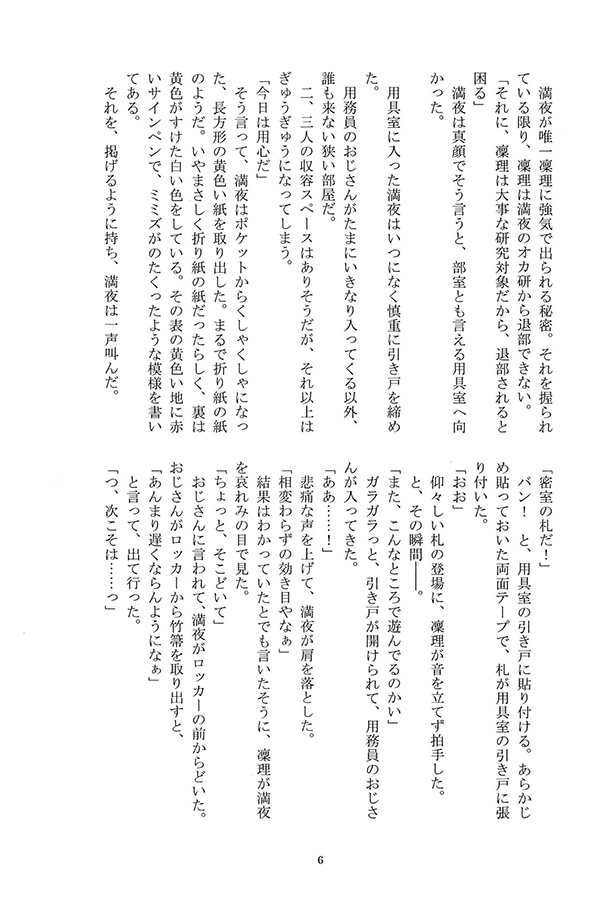 満夜が唯一凜理に強気で出られる秘密。それを握られ
ている限り、凜理は満夜のオカ研から退部できない。
「それに、凜理は大事な研究対象だから、退部されると
困る」
　満夜は真顔でそう言うと、部室とも言える用具室へ向
かった。
　用具室に入った満夜はいつになく慎重に引き戸を締め
た。
　用務員のおじさんがたまにいきなり入ってくる以外、
誰も来ない狭い部屋だ。
　二、三人の収容スペースはありそうだが、それ以上は
ぎゅうぎゅうになってしまう。
「今日は用心だ」
　そう言って、満夜はポケットからくしゃくしゃになっ
た、長方形の黄色い紙を取り出した。まるで折り紙の紙
のようだ。いやまさしく折り紙の紙だったらしく、裏は
黄色がすけた白い色をしている。その表の黄色い地に赤
いサインペンで、ミミズがのたくったような模様を書い
てある。
　それを、掲げるように持ち、満夜は一声叫んだ。
「密室の札だ！」
　バン！　と、用具室の引き戸に貼り付ける。あらかじ
め貼っておいた両面テープで、札が用具室の引き戸に張
り付いた。
「おお」
　仰々しい札の登場に、凜理が音を立てず拍手した。
　と、その瞬間――。
「また、こんなところで遊んでるのかい」
　ガラガラっと、引き戸が開けられて、用務員のおじさ
んが入ってきた。
「ああ……！」
　悲痛な声を上げて、満夜が肩を落とした。
「相変わらずの効き目やなぁ」
　結果はわかっていたとでも言いたそうに、凜理が満夜
を哀れみの目で見た。
「ちょっと、そこどいて」
　おじさんに言われて、満夜がロッカーの前からどいた。
おじさんがロッカーから竹箒を取り出すと、
「あんまり遅くならんようになぁ」
　と言って、出て行った。
「つ、次こそは……っ」
6